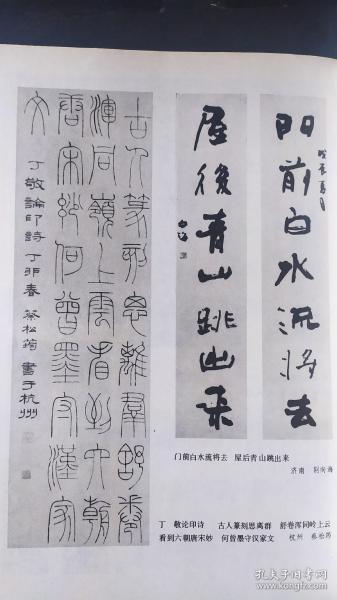 門前白水流将去
屋後青山跳出来
古人篆刻思離羣舒卷
渾同嶺上雲看到六朝
唐宋妙何曾墨守漢家
文
丁敬論印詩 丁卯春 蔡松筠 書于杭州
门前白水流将去 屋后青山跳出来
济南 荆向海
丁 敬论印诗 古人篆刻思离群 舒卷浑同岭上云
看到六朝唐宋妙 何曾墨守汉家文 杭州 蔡松筠
孔夫子旧书网